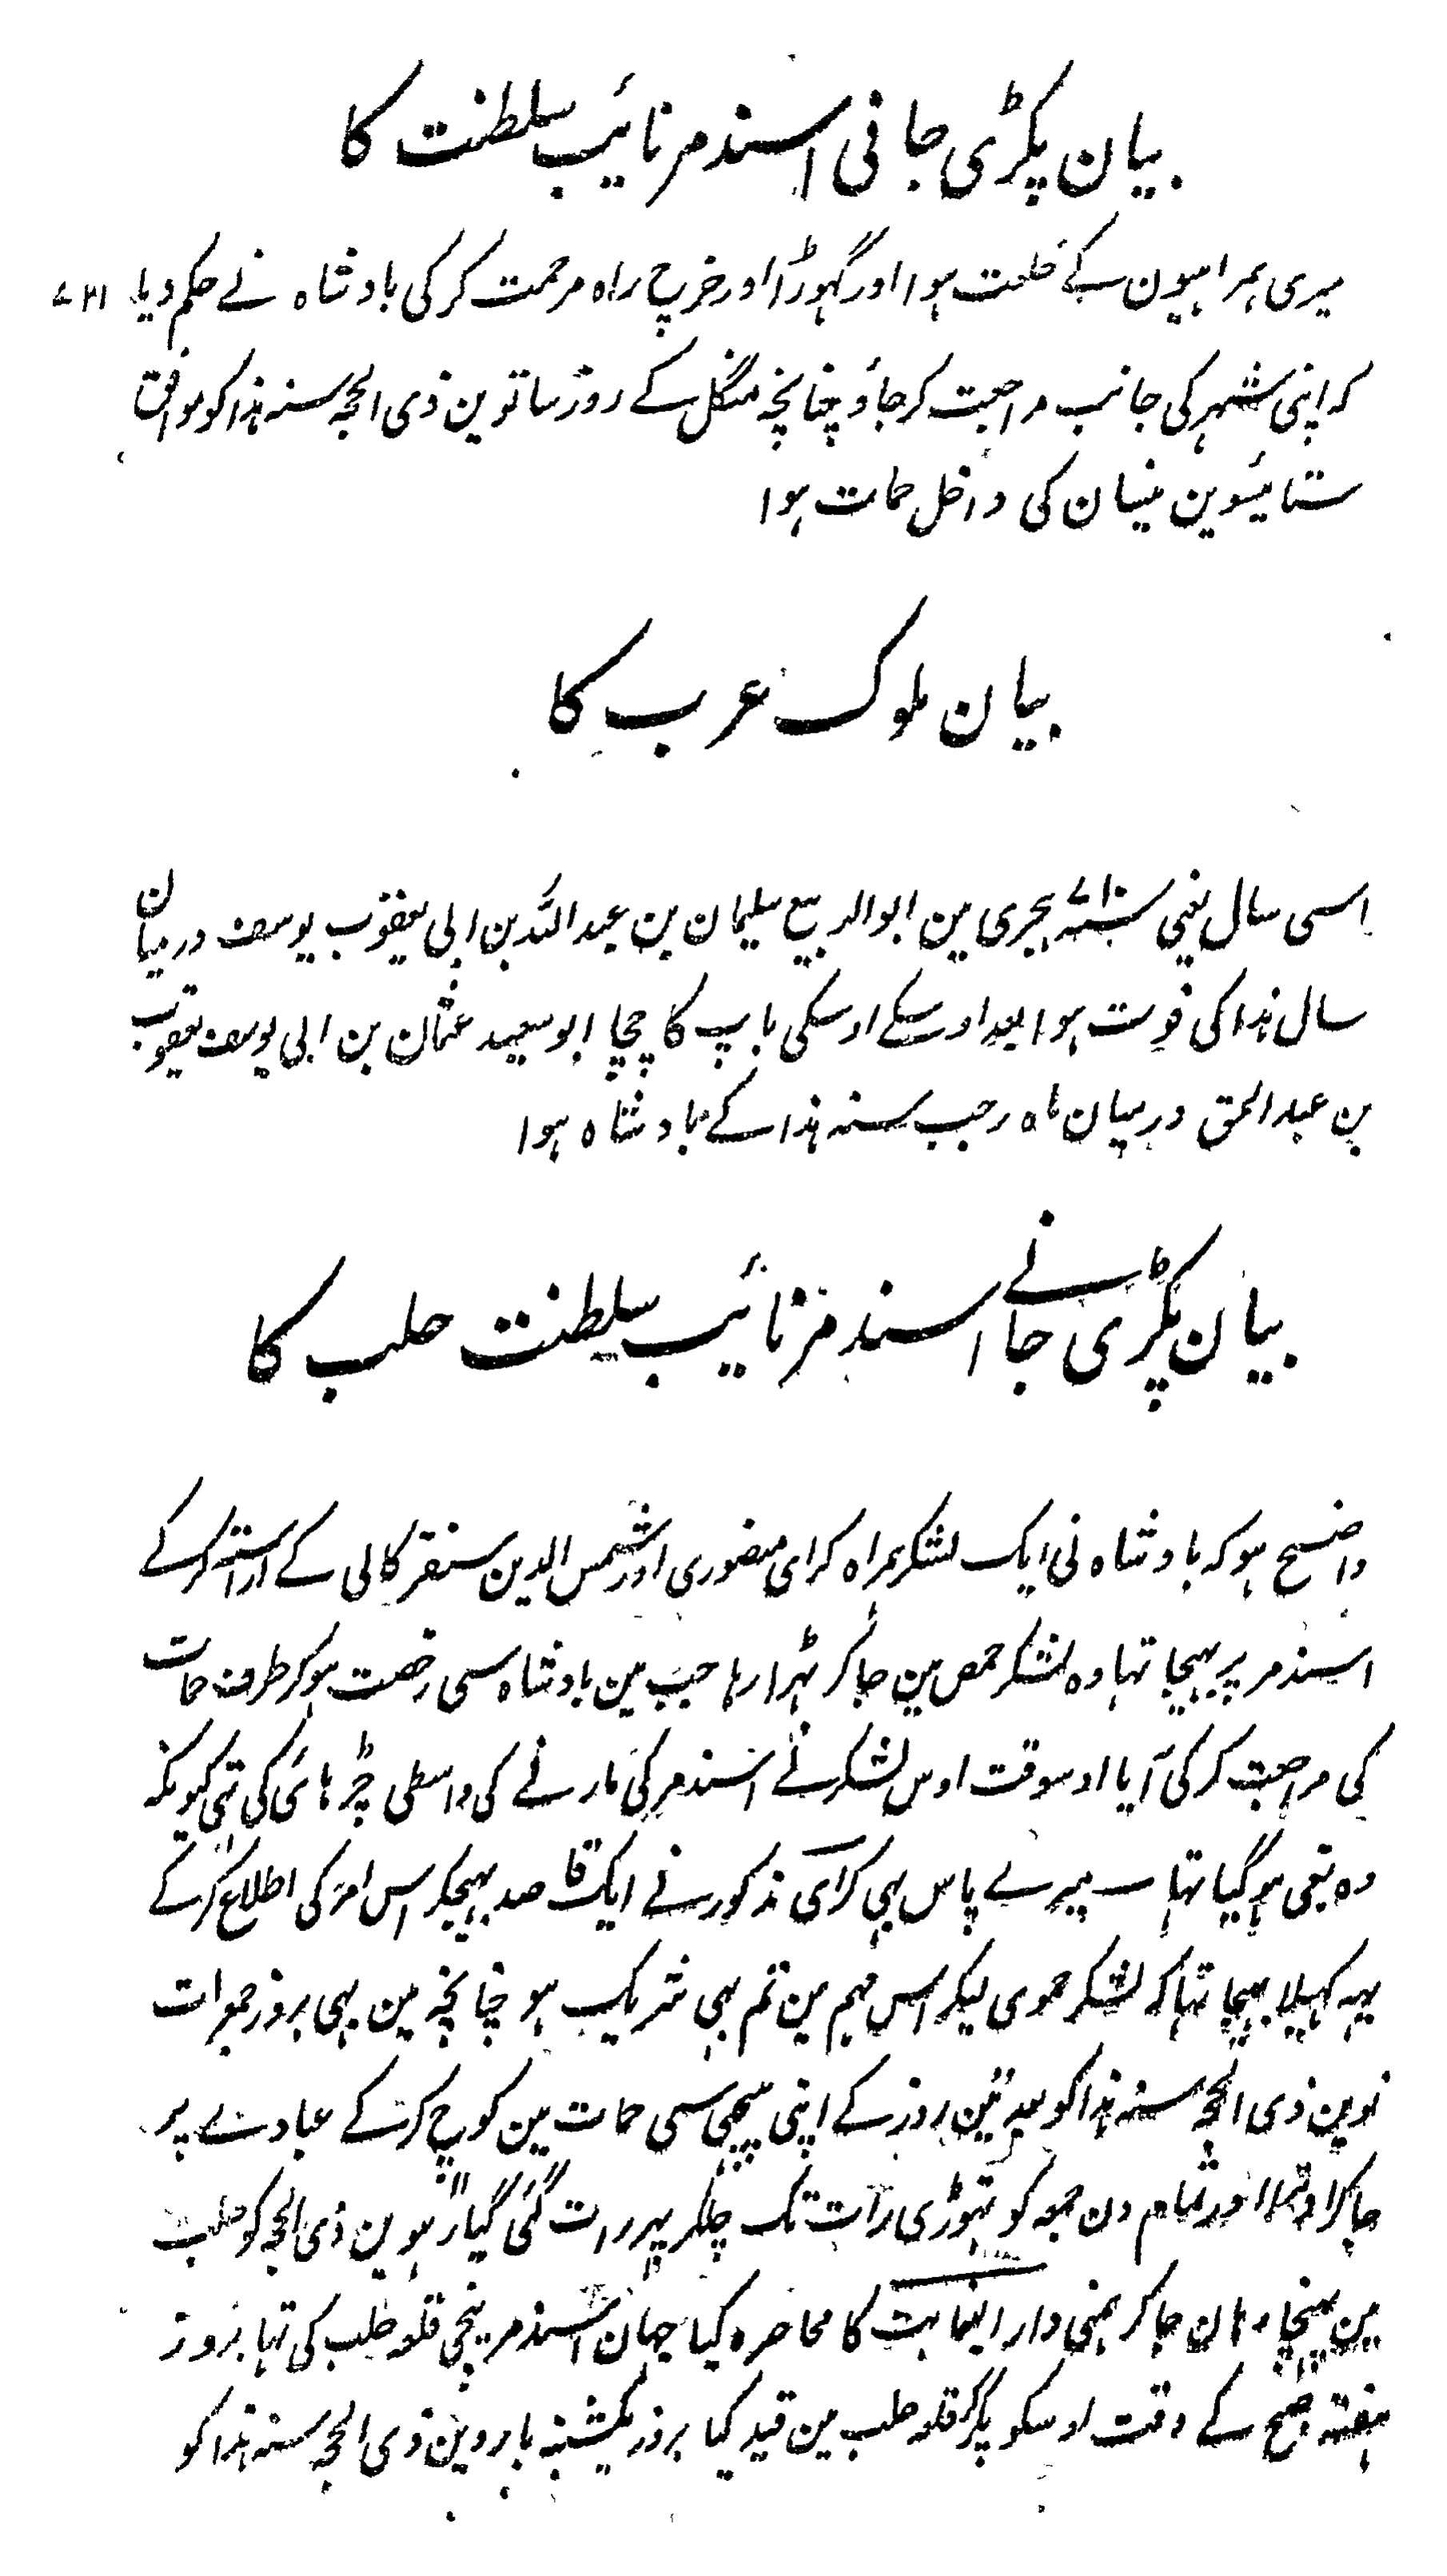 بیان پکڑی جانی اسندمر نائب سلطنت کا
میری ہمراہیون کے خلعت ہوا اور گہوڑا اور خرچ راہ مرحمت کرکی بادشاہ نے حکم دیا ۷۳۱
کہ اپنی شہر کی جانب مراجعت کر جاؤ چنانچہ منگل کے روز ساتوین ذی الحجہ سنہ ہذا کو موافق
ستائیسوین نیسان کی داخل حمات ہوا
بیان ملوک عرب کا
اسی سال یعنی سنہ ۷۱۰ ہجری مین ابو الربیع سلیمان بن عبد اللہ بن ابی یعقوب یوسف درمیان
سال ہذا کی فوت ہوا بعد اوسکے اوسکی باپ کا چچا ابو سعید عثمان بن ابی یوسف یعقوب
بن عبد الحق درمیان ماہ رجب سنہ ہذا کے بادشاہ ہوا
بیان پکڑی جانے اسندمر نائب سلطنت حلب کا
واضح ہو کہ بادشاہ نی ایک لشکر ہمراہ کرای منصوری اور شمس الدین سنقر کمالی کے آراستہ کرکے
اسندمر پر بہیجا تہا وہ لشکر حمص مین جاکر ٹہرا رہا جب مین بادشاہ سی رخصت ہوکر طرف حمات
کی مراجعت کرکی آیا اوسوقت اوس لشکر نے اسندمر کی مارنے کی واسطی چڑہائی کی تہی کیونکہ
وہ بغی ہو گیا تہا میرے پاس بہی کرای مذکور نے ایک قاصد بہیجکر اس امر کی اطلاع کرکے
یہہ کہلا بہیجا تہا کہ لشکر حموی لیکر اس مہم مین تم بہی شریک ہو چنانچہ مین بہی بروز جمعرات
نوین ذی الحجہ سنہ ہذا کو بعد تین روز کے اپنی پہنچی سی حمات مین کوچ کرکے عبادے پر
جاکر اوترا اور تمام دن جمعہ کو تہوڑی رات تک چلکر پہر رات گئی گیارہوین ذی الحجہ کو حلب
مین پہنچا وہان جاکر ہمنی دار النیابت کا محاصرہ کیا جہان اسندمر نیچی قلعہ حلب کی تہا بروز
ہفتہ صبح کے وقت اوسکو پکڑ کر قلعہ حلب مین قید کیا بروز یکشنبہ بارہوین ذی الحجہ سنہ ہذا کو